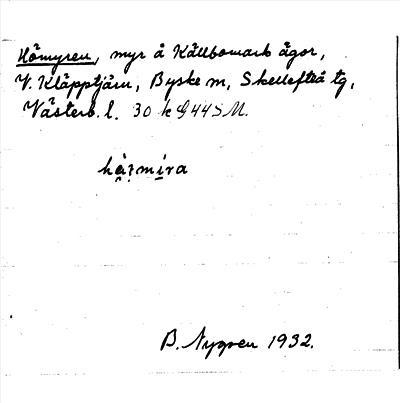 Hömyren, myr å Källbomark ägor,
V. Kläpptjärn, Byske m, Skellefteå tg,
Västerb. l. 30 k G44SM.
B. Nygren 1932.